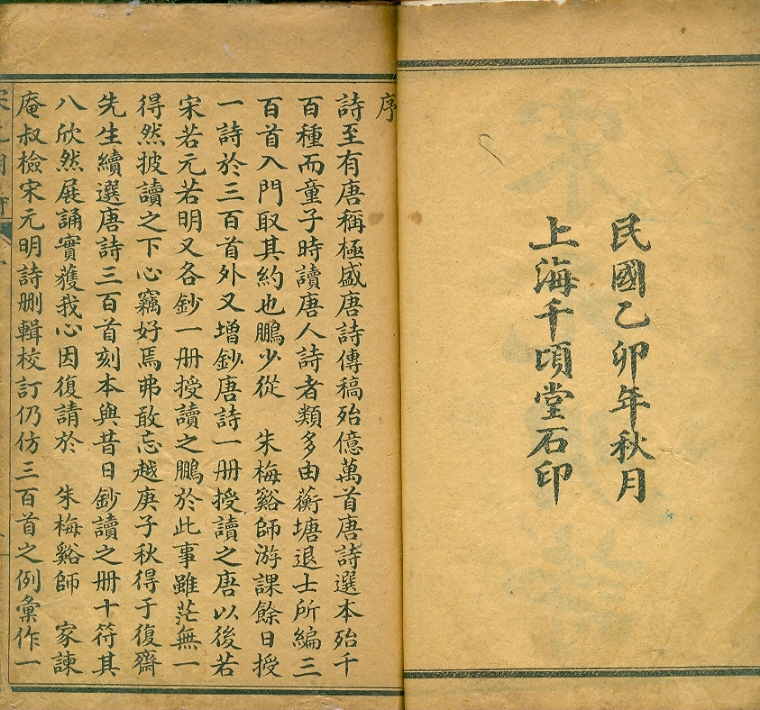 民國乙卯年秋月
上海千頃堂石印
序
詩至有唐稱極盛唐詩傳稿殆億萬首唐詩選本殆千
百種而童子時讀唐人詩者類多由蘅塘退士所編三
百首入門取其約也鵬少從 朱梅谿師游課餘日授
一詩於三百首外又增鈔唐詩一册授讀之唐以後若
宋若元若明又各鈔一册授讀之鵬於此事雖茫無一
得然披讀之下心竊好焉弗敢忘越庚子秋得于復齋
先生續選唐詩三百首刻本與昔日鈔讀之册十符其
八欣然展誦實獲我心因復請於 朱梅谿師 家諫
庵叔檢宋元明詩删輯校訂仍仿三百首之例彙作一